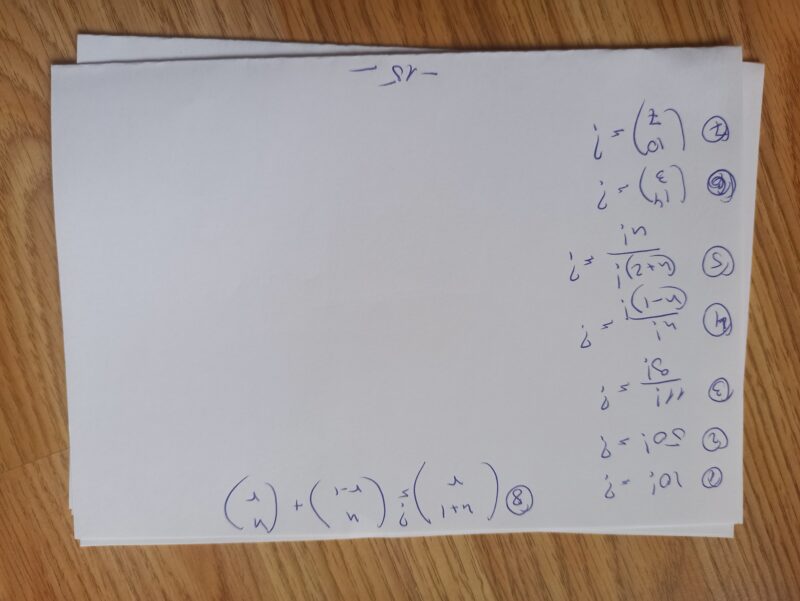 ① 10! = ?
② 50! = ?
③ 11! / 9! = ?
④ n! / (n-1)! = ?
⑤ (n+2)! / n! = ?
⑥ (14 3) = ?
⑦ (10 7) = ?
⑧ (n+1 r) ?= (n r-1) + (n r)
- 15 -